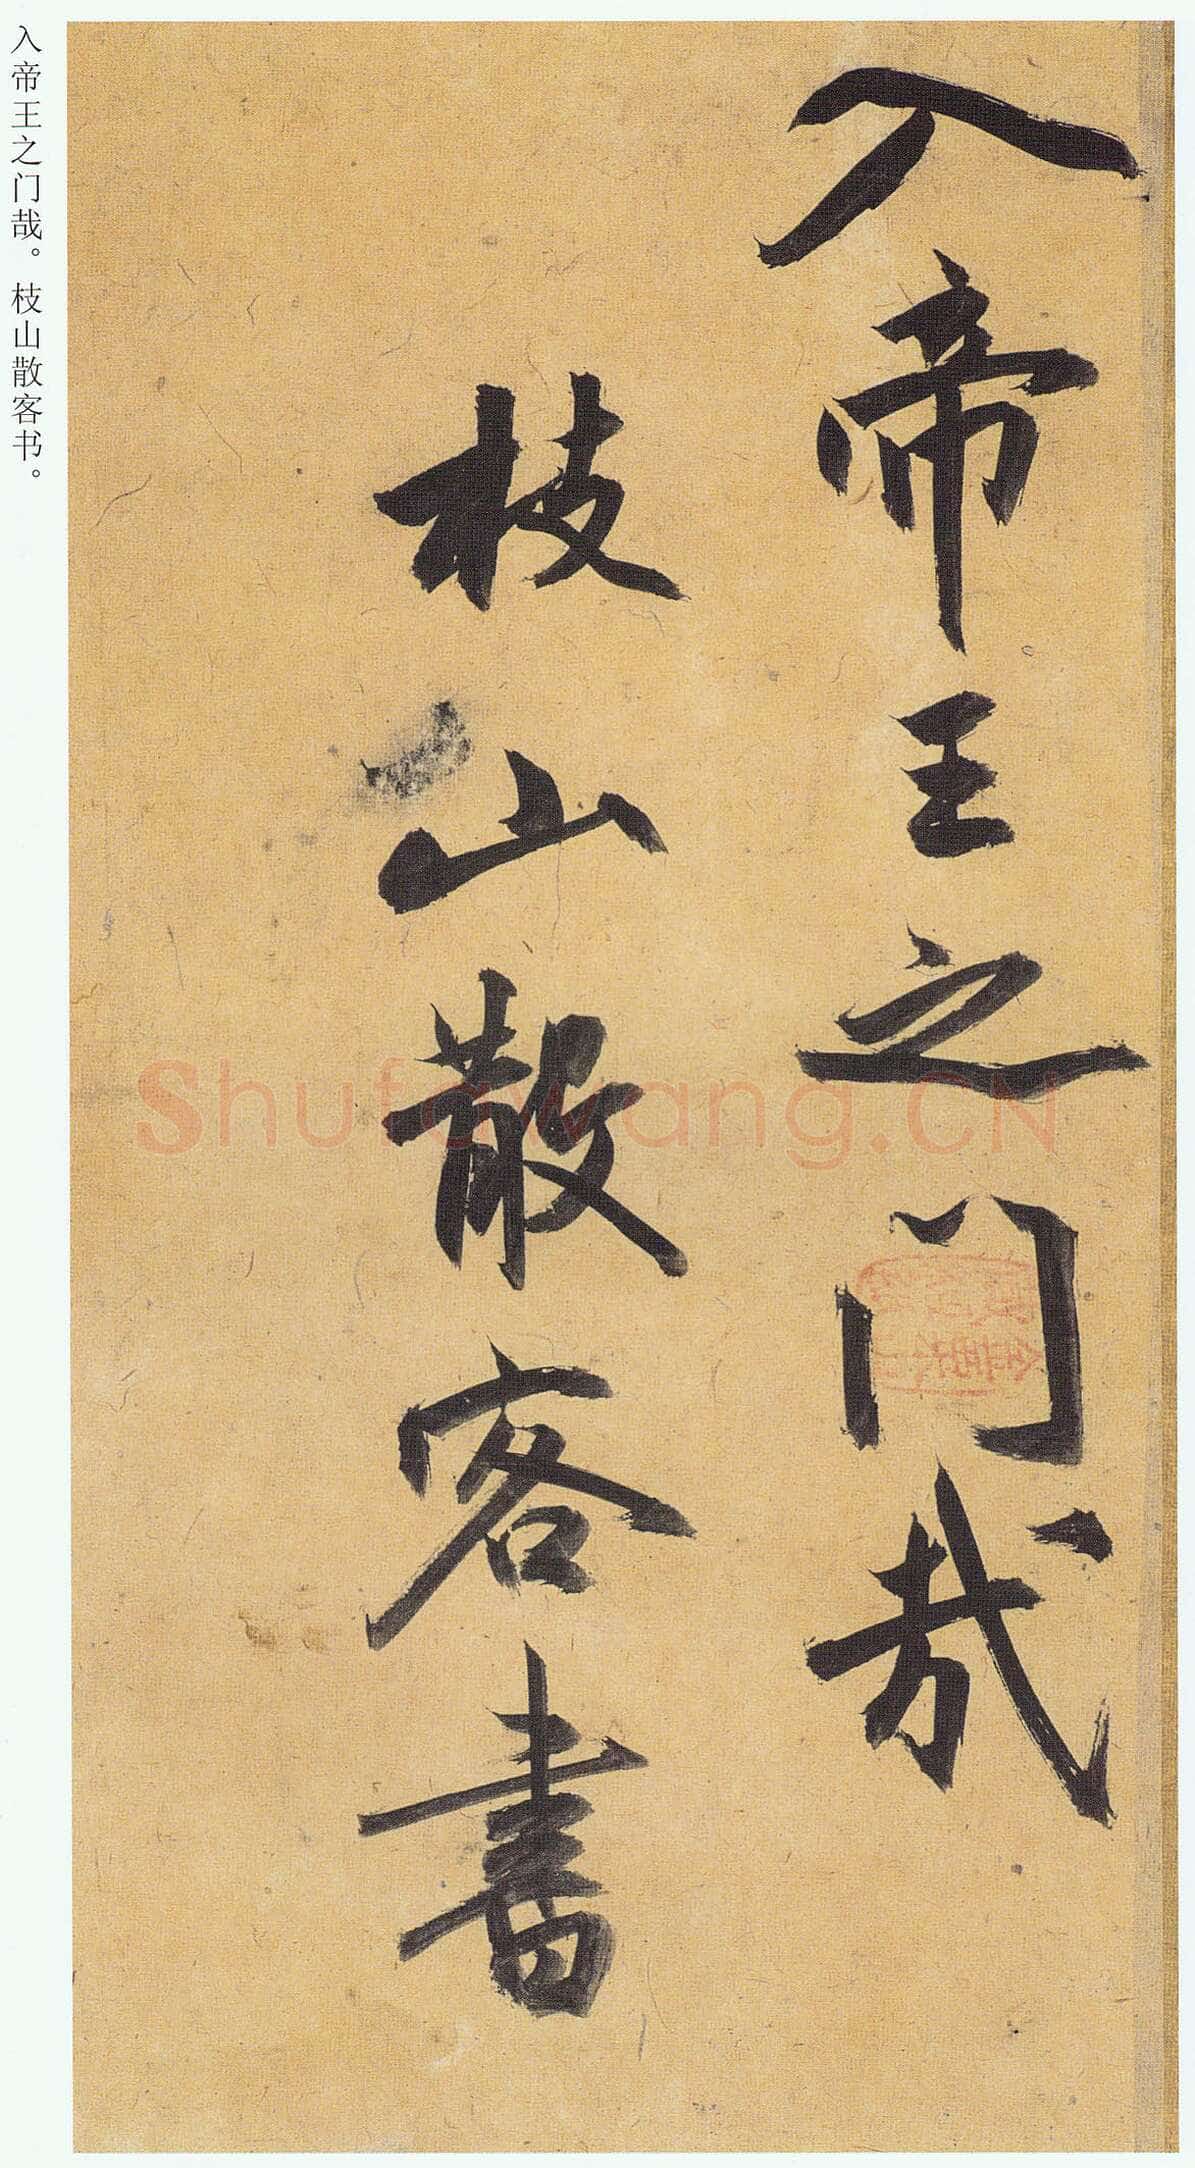 入帝王之门哉
枝山散客書
入帝王之门哉。枝山散客书。
Shufawang.CN